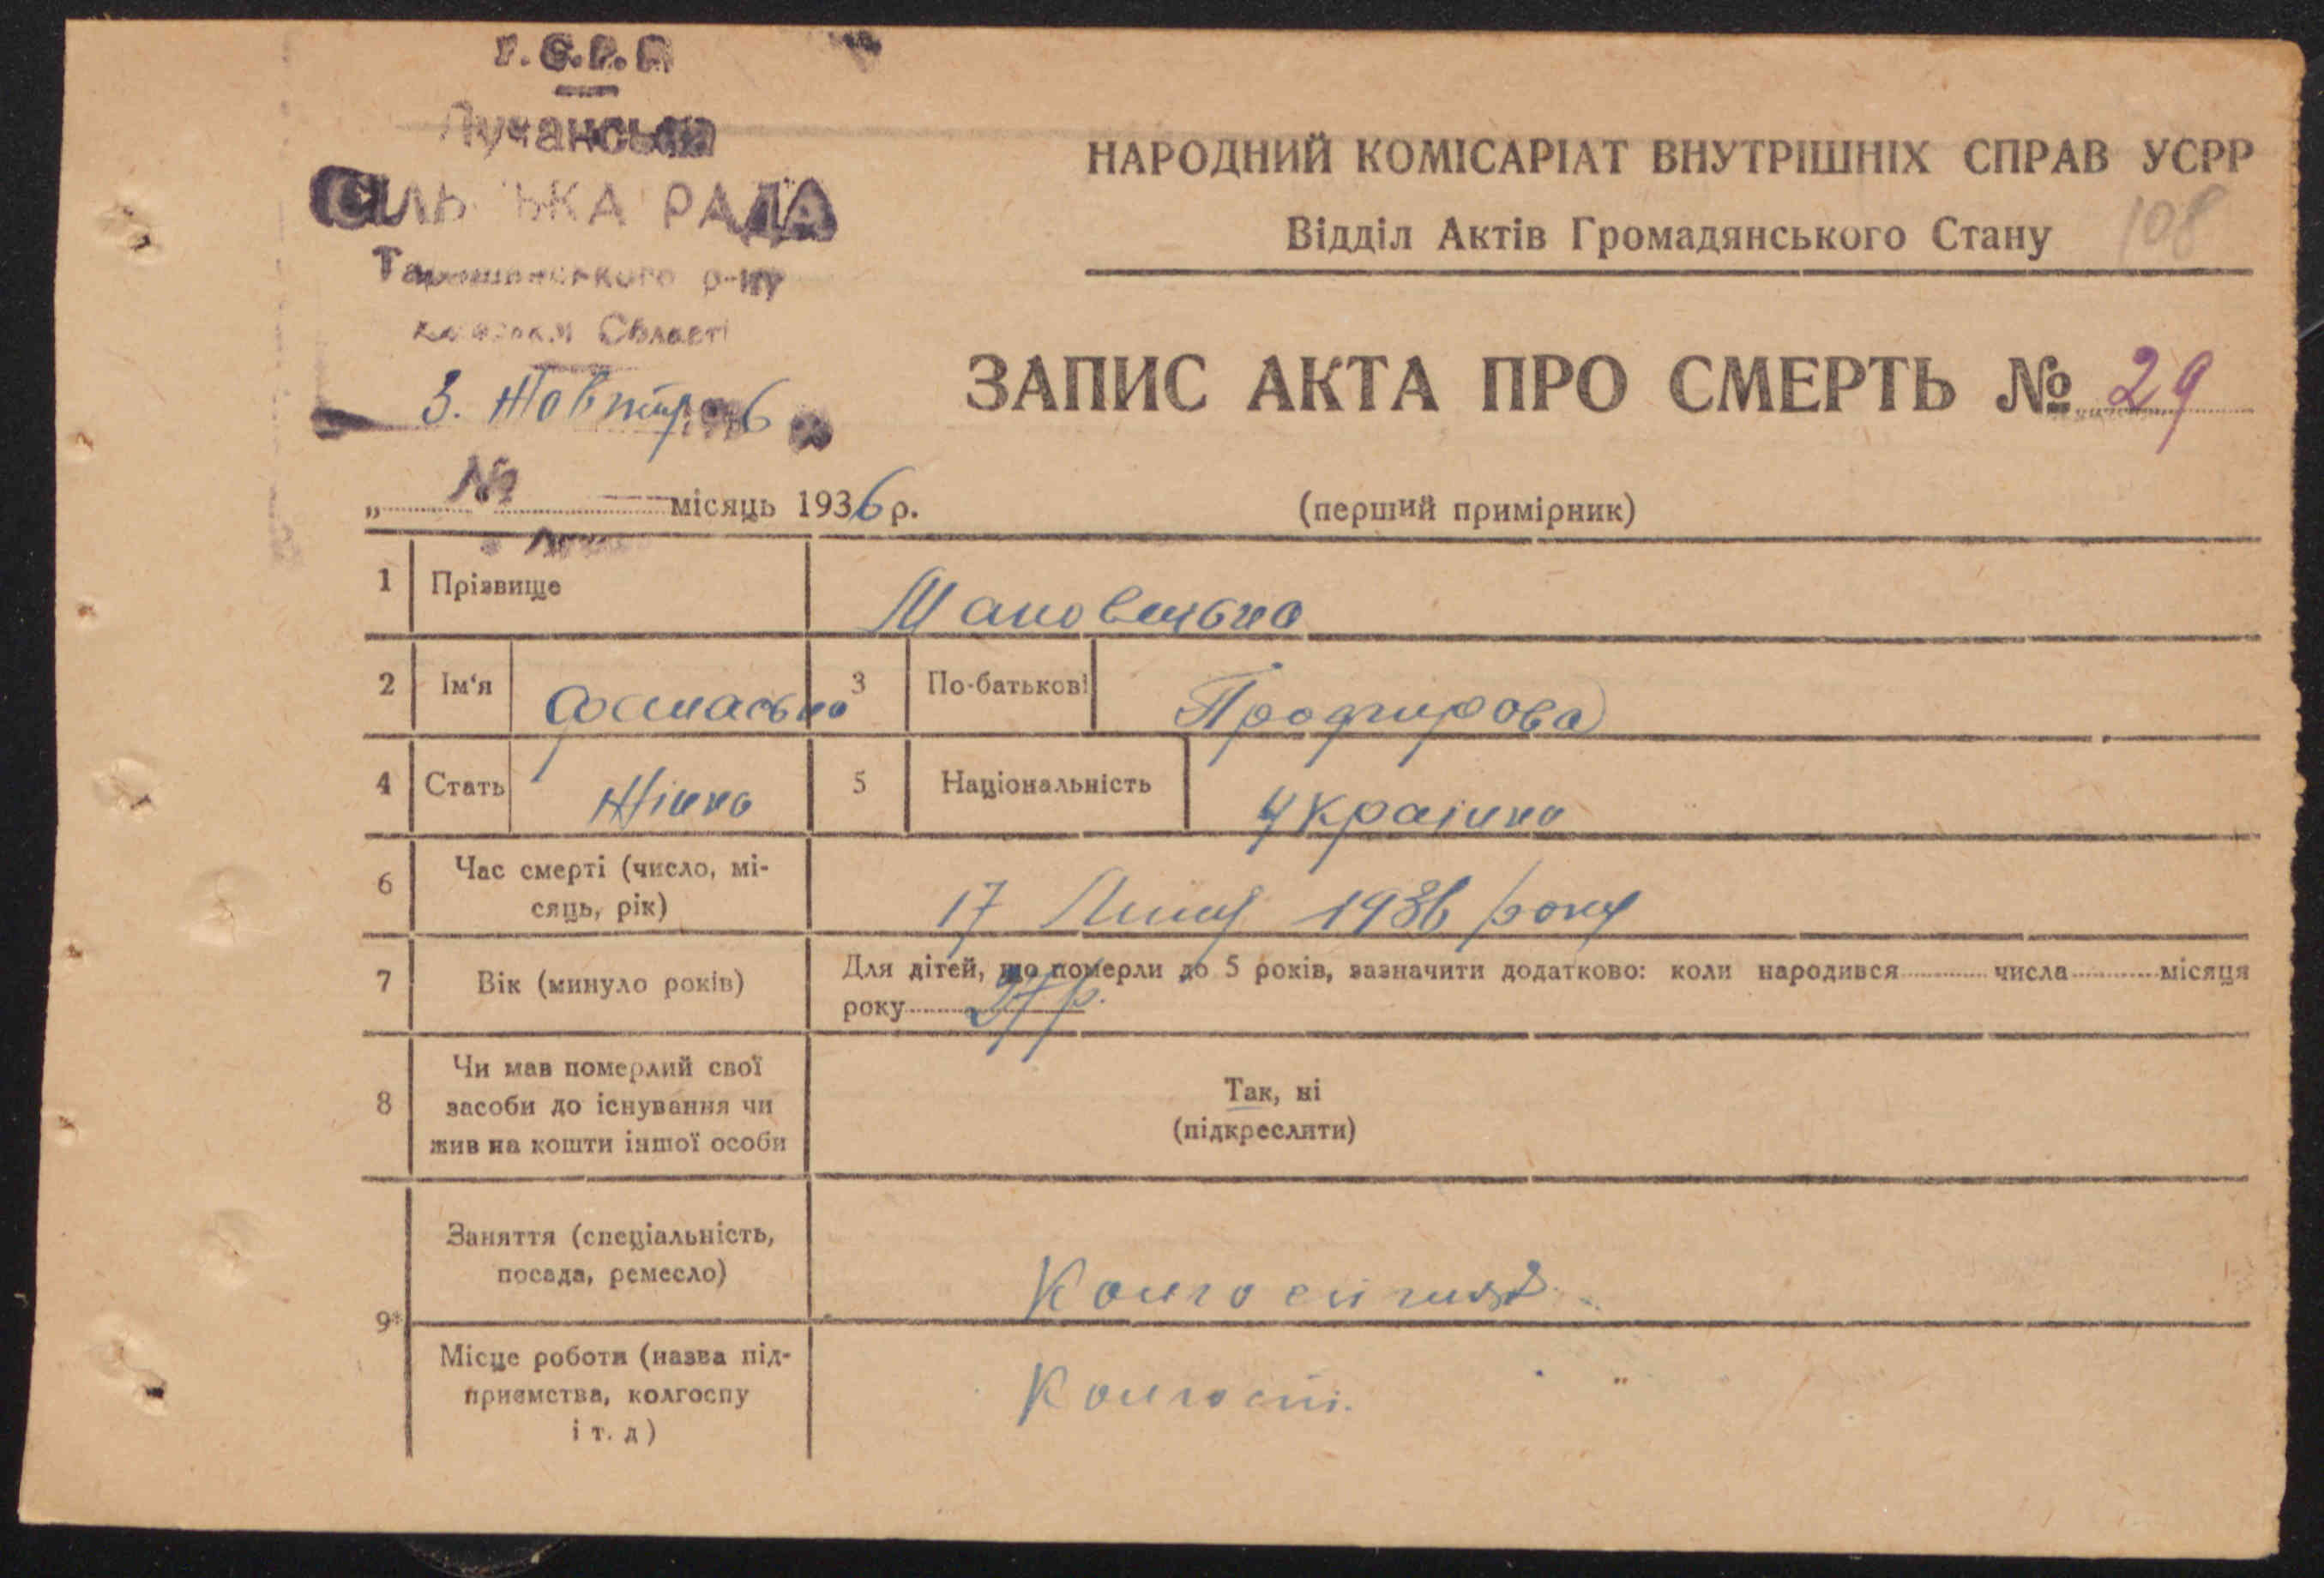 У.С.Р.Р
Лучанська
СІЛЬСЬКА РАДА
Таращанського р-ну
Київської Області
3. Жовтня 6
№
„ місяць 1936 р.
НАРОДНИЙ КОМІСАРІАТ ВНУТРІШНІХ СПРАВ УСРР
Відділ Актів Громадянського Стану
108
ЗАПИС АКТА ПРО СМЕРТЬ № 29
(перший примірник)
1 Прізвище Мановецька
2 Ім‘я 3 По-батькові Профирова
4 Стать Жінка 5 Національність Українка
6 Час смерті (число, мі-
сяць, рік) 17 1936 року
7 Вік (минуло років) Для дітей, що померли до 5 років, зазначити додатково: коли народився числа місяця
року 27 р.
8 Чи мав померлий свої
засоби до існування чи
жив на кошти іншої особи
Так, ні
(підкреслити)
9* Заняття (спеціальність,
посада, ремесло)
Місце роботи (назва під-
приємства, колгоспу
і т. д)
Колгосп.